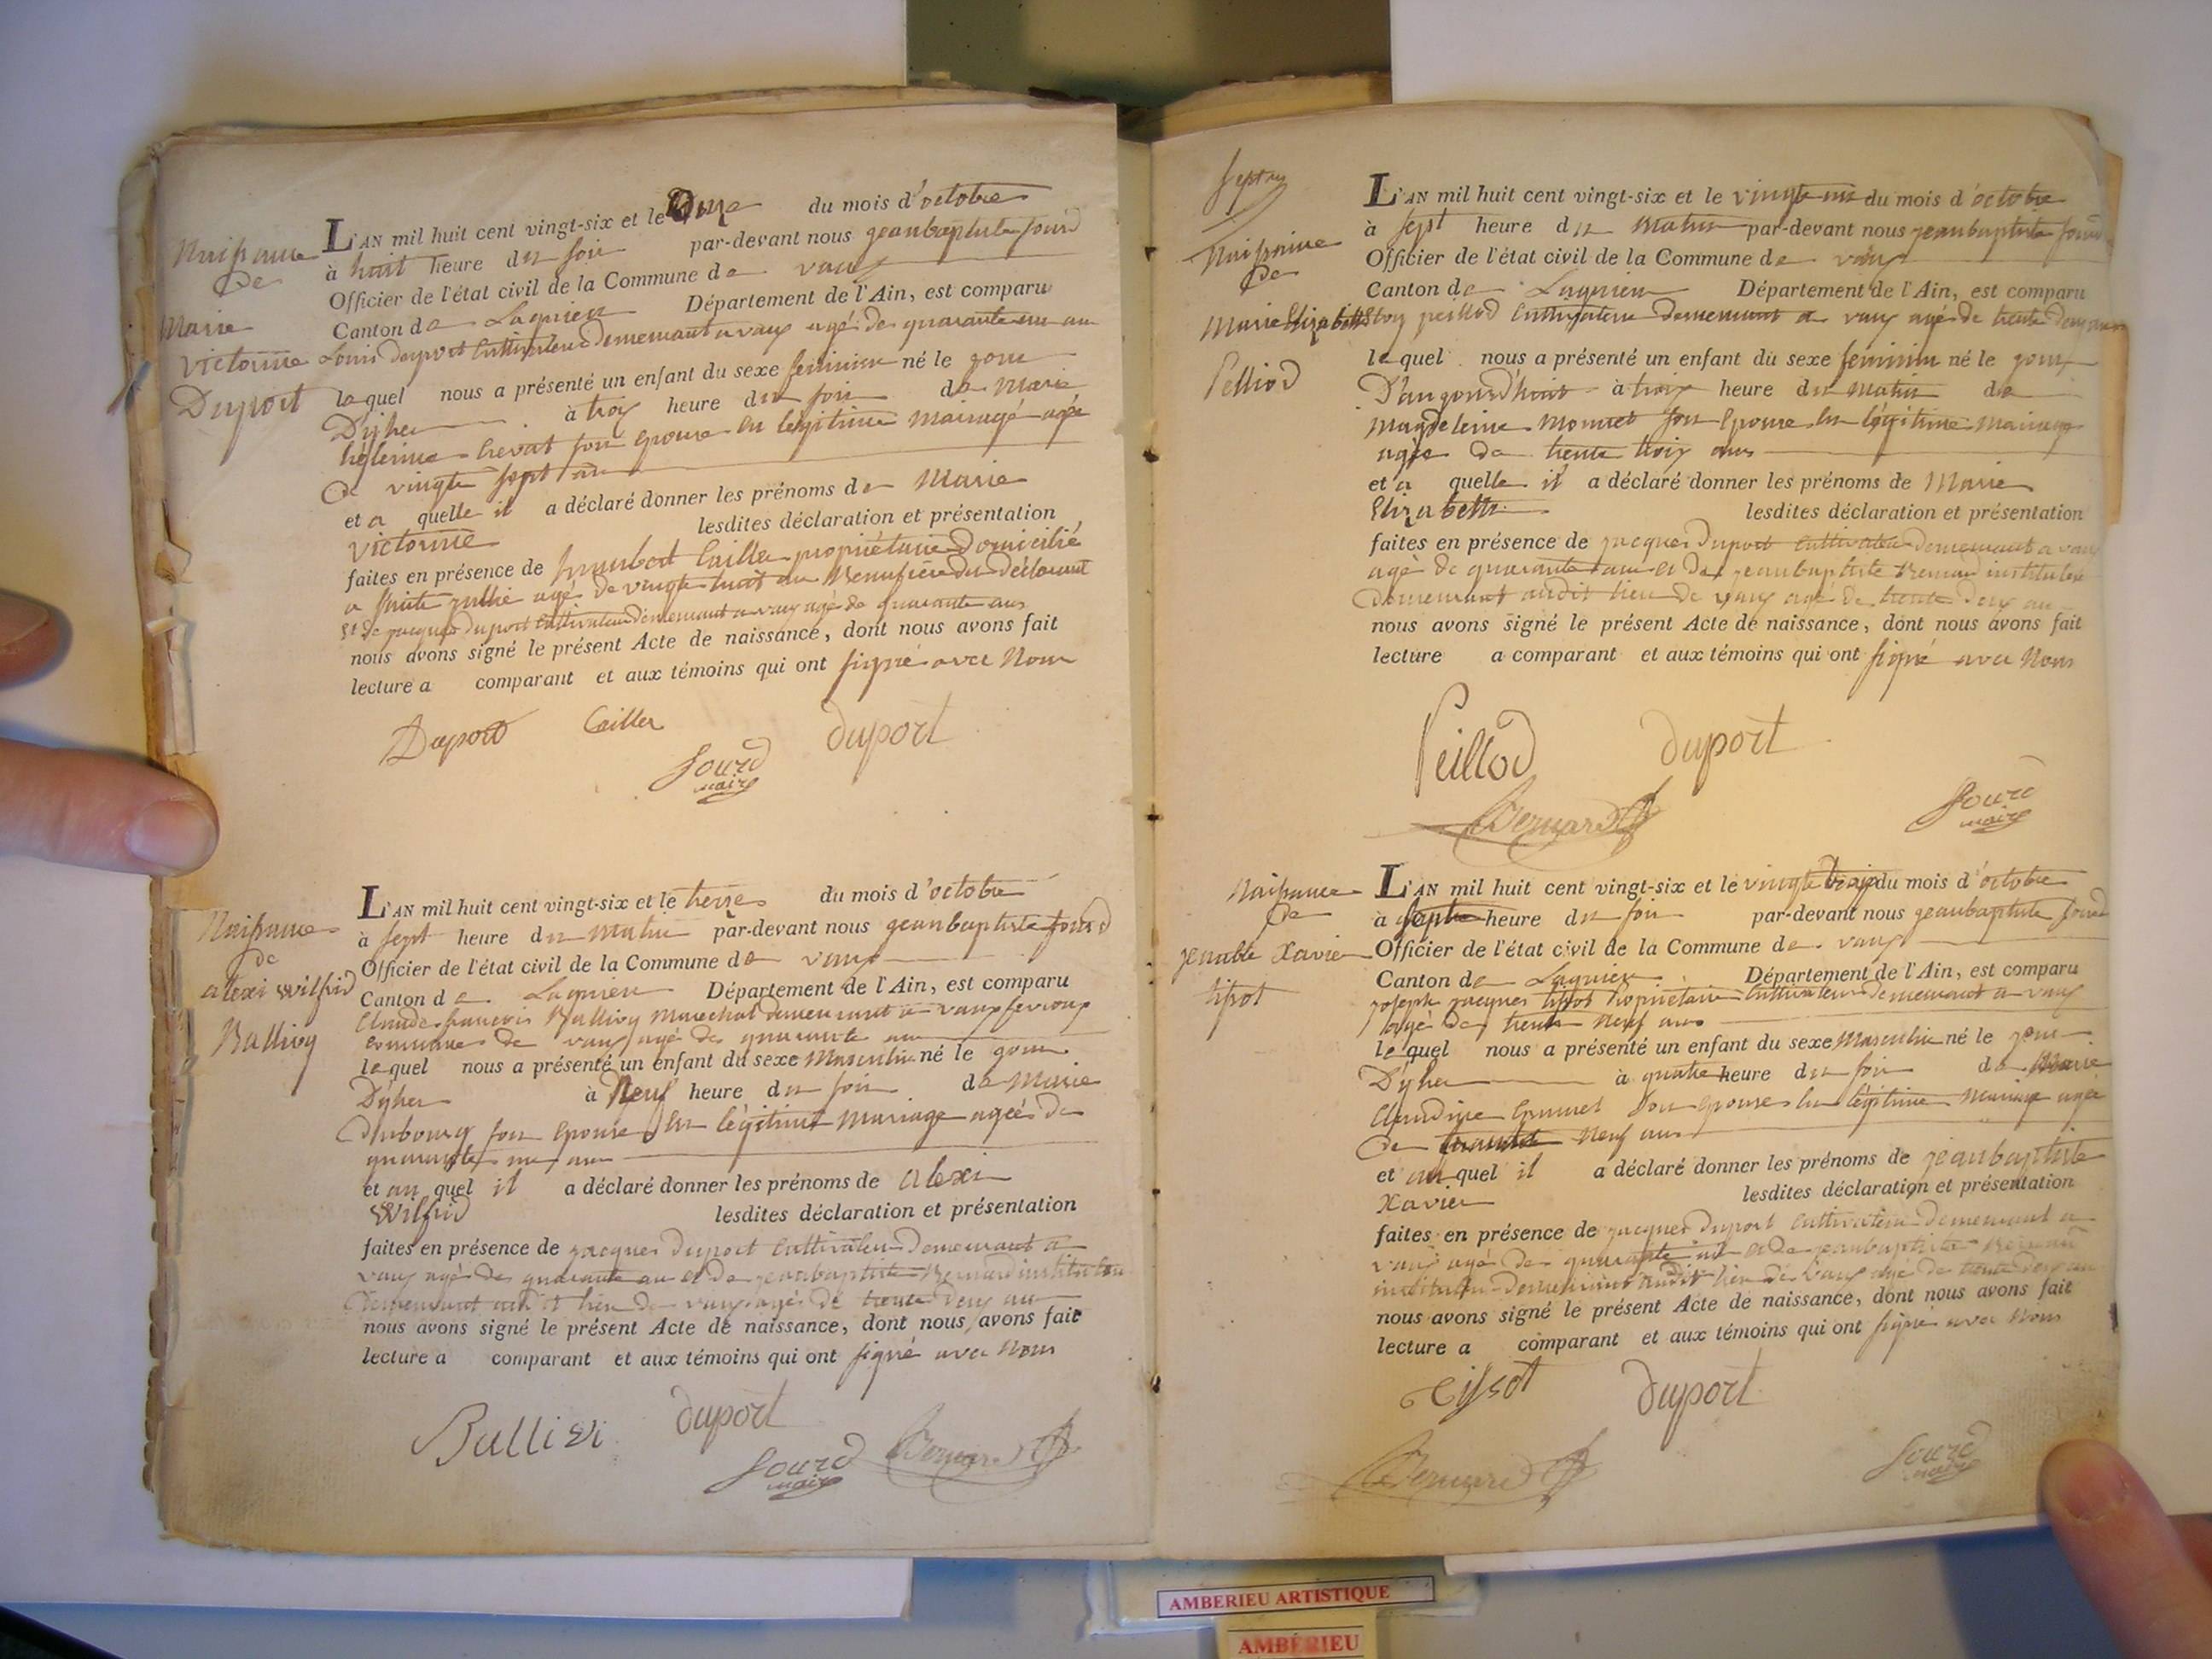 Naissance
De
Marie
Victorine
Duport
L'AN mil huit cent vingt-six et le onze du mois d'octobre
à huit heure du soir par-devant nous jeanbaptiste sourd
Officier de l'état civil de la Commune de vaux
Canton de Lagnieu Département de l'Ain, est comparu
Louis Duport Cultivateur demeurant a vaux agé de quarante un an
lequel nous a présenté un enfant du sexe feminin né le jour
D'yher à trois heure du soir de Marie
son Epouse en legitime mariage agée
De vingte sept an
et a quelle il a déclaré donner les prénoms de Marie
victorine lesdites déclaration et présentation
faites en présence de humbert Caille propriétaire Domicilié
a Sainte jullie agé de vingte huit an du Déclarant
Et De jacques Duport Cultivateur Demeurant a vaux agé de quarante ans
nous avons signé le présent Acte de naissance, dont nous avons fait
lecture a comparant et aux témoins qui ont signé avec Nous
Duport Cailler duport
Sourd
maire
Naissance
de
alexi Wilfrid
Ballivy
L'AN mil huit cent vingt-six et le treize du mois d'octobre
à sept heure du matin par-devant nous jeanbaptiste sourd
Officier de l'état civil de la Commune de vaux
Canton de Lagnieu Département de l'Ain, est comparu
Claude francois Ballivy Marechal demeurant a vaux
commune de vaux agé de quarante an
lequel nous a présenté un enfant du sexe Masculin né le jour
D'yher à Neuf heure du soir de Marie
Dubourg son Epouse En légitime Mariage agée de
quarante un an
et au quel il a déclaré donner les prénoms de alexi
Wilfrid lesdites déclaration et présentation
faites en présence de jacques Duport Cultivateur Demeurant a
vaux agé de quarante an et de jeanbaptiste Bernard instituteur
Demeurant audit lieu de vaux agé de trente deux an
nous avons signé le présent Acte de naissance, dont nous avons fait
lecture a comparant et aux témoins qui ont signé avec Nous
Ballivi duport
Sourd Bernard
maire
Naissance
De
Marie Elizabeth
Pelliod
L'AN mil huit cent vingt-six et le vingte un du mois d'octobre
à sept heure du matin par-devant nous jeanbaptiste sourd
Officier de l'état civil de la Commune de vaux
Canton de Lagnieu Département de l'Ain, est comparu
peillod Cultivateur demeurant a vaux agé de trente deux ans
lequel nous a présenté un enfant du sexe feminin né le jour
D'aujourd'huit à trois heure du matin de
Magdeleine Monnet son Epouse en légitime Mariage
agée de trente trois ans
et a quelle il a déclaré donner les prénoms de Marie
Elizabeth lesdites déclaration et présentation
faites en présence de jacques Duport Cultivateur Demeurant a vaux
agé de quarante an et de jeanbaptiste Bernard instituteur
Demeurant audit lieu de vaux agé de trente deux an
nous avons signé le présent Acte de naissance, dont nous avons fait
lecture a comparant et aux témoins qui ont signé avec Nous
Peillod duport
Bernard Sourd
maire
Naissance
De
Xavier
tissot
L'AN mil huit cent vingt-six et le vingte trois du mois d'octobre
à heure du soir par-devant nous jeanbaptiste sourd
Officier de l'état civil de la Commune de vaux
Canton de Lagnieu Département de l'Ain, est comparu
joseph jacques tissot Propriétaire Cultivateur Demeurant a vaux
agé de trente Neuf ans
lequel nous a présenté un enfant du sexe Masculin né le jour
D'yher à quatre heure du soir de Marie
Claudine son Epouse en légitime Mariage agée
De Neuf ans
et au quel il a déclaré donner les prénoms de jeanbaptiste
Xavier lesdites déclaration et présentation
faites en présence de jacques Duport Cultivateur Demeurant a
vaux agé de quarante an et de jeanbaptiste Bernard
instituteur Demeurant audit lieu de vaux agé de trente deux an
nous avons signé le présent Acte de naissance, dont nous avons fait
lecture a comparant et aux témoins qui ont signé avec Nous
Tissot duport
Bernard Sourd
maire
AMBERIEU ARTISTIQUE
AMBÉRIEU